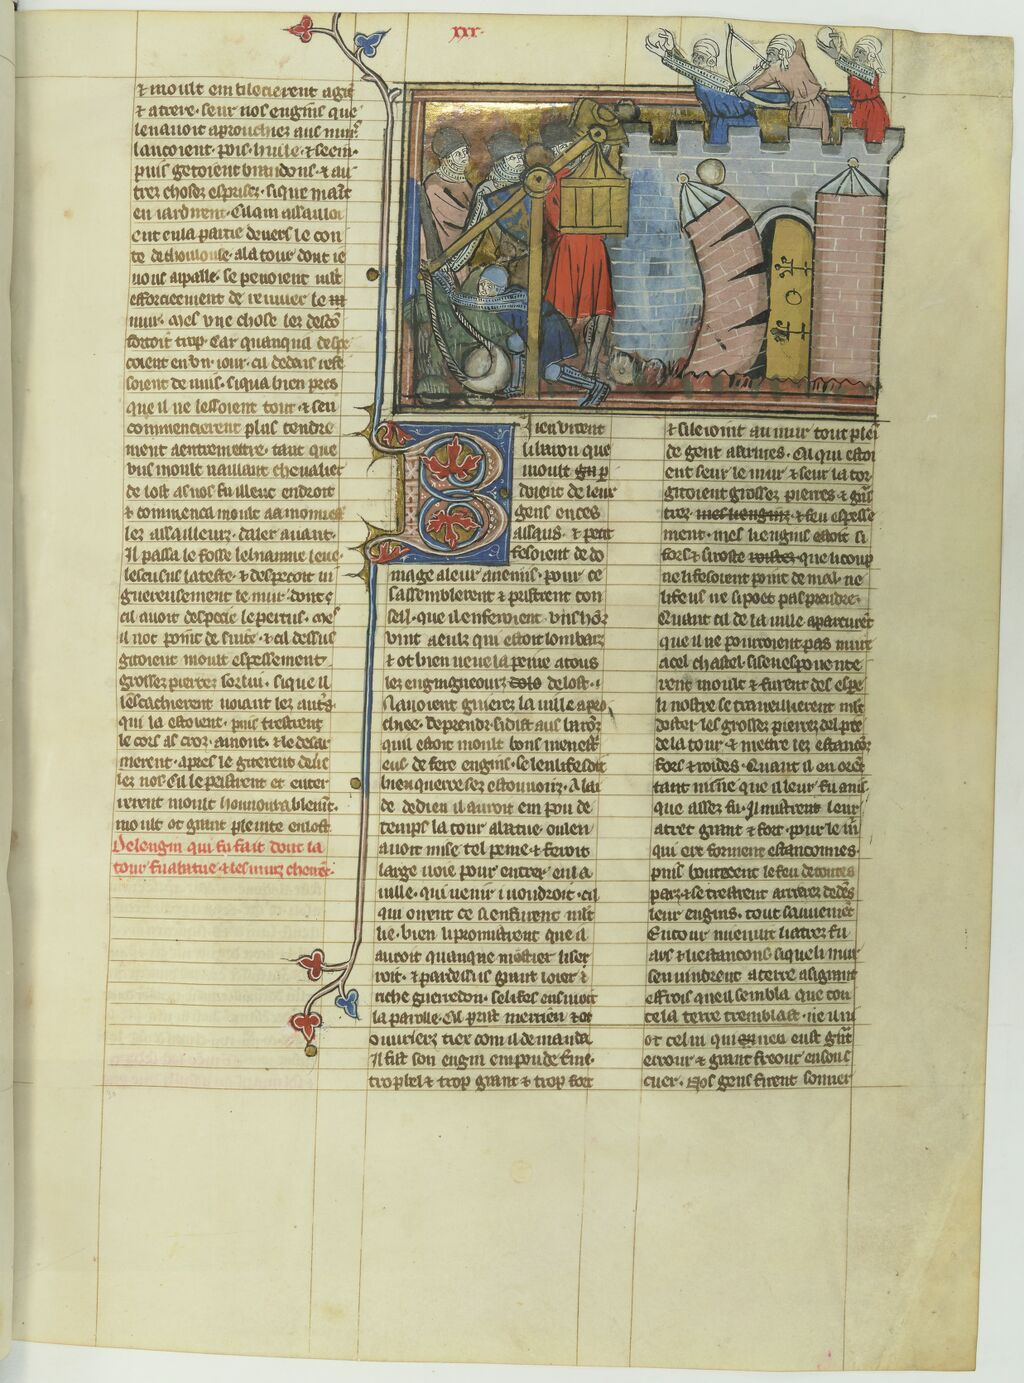 xxx.
& moult embilecierent agit
& atrere. seur nos engins que
len auoit aprouchiez aus murs
lancoient. pois. huile. & seem.
puis getoient brandons. & au
trez chosez esprisez. si que maint
en iardirent. Cil qui assailloi
ent en la partie deuers le con
te de thoulouse. a la tour dont ie
uous ai palle. se penoient mlt
efforcieement de reuuer le
mur. Mes vne chose lez descon
fortoit trop. Car quanquil despe
coient en vn iour. cil dedans refe
soient de nuis. si qua bien pres
que il ne lessoient tout. & seu
commencierent plus tendre
ment a entremettre. tant que
vns moult uaillant cheualier
de lost as nos fu illeuc endroit
& commenca moult a amonnes
lez assailleurs daler auant.
Il passa le fosse le hiaume leue.
lescu sus la teste. & despecoit ui
guereusement le mur dont
cil auoit despecie le pertus. mes
il not point de suite. & cil dessus
gitoient moult espessement
grossez pierrez sor lui. si que il
lescachierent uoiant lez autres
qui la estoient. puis trestrent
le cors as croz amont. & le desar
merent. apres le giterent deuers
lez nos. si le pristrent et enter
rerent moult honnourablement.
moult ot grant pleinte en lost.
De lengin qui fu fait dont la
tour fu abatue & les murz cheirent.
Bien virent
li baron que
moult
doient de leur
gens en ces
assaus. & petit
fesoient de do
mage a leur anemis. pour ce
sassemblerent & pristrent con
seil. que il en feroient. Vns hons
vint a eulz qui estoit lombarz
& ot bien ueue la peine a tous
lez engingneours de lost. i
si auoient guierez la uille apro
chiee. de prendre. si dist aus barons
quil estoit moult bons menestre
eus de fere engins. se len li fesoit
bien querre sez estouuoirz. A lai
de de dieu il auroit em pou de
temps la tour abatue. ou len
auoit mise tel peine & feroit
large uoie pour entrer en la
uille. qui uenir i uoudroit. cil
qui oirent ce si en furent mlt
lie. bien li promistrent que il
auroit quanque mestier li ser
roit. & par dessus grant loier &
riche guerredon. se li fes ensiuoit
la parolle. Cil prist merrien & ot
ouuriers tiex com il demanda
Il fist son engin em pou de tens.
trop bel & trop grant & trop fort
& sile ioint au mur tout plei
de gent armees. Cil qui estoi
ent seur le mur & seur la tor
gitoient grossez pierres & gran
& feu espesse
ment. mes li engins estoit si
fors & si roste que li coup
ne li fesoient point de mal. ne
li feus ne si poet pas prendre.
Quant cil de la uille aparcurent
que il ne pourroient pas nuire
a cel chastel. si sen espouente
rent moult & furent des espe
li nostre se traueillierent mlt
doster les grosses pierrez del pie
de la tour & mettre lez estancons
fors & roides. Quant il en orent
tant mine que il leur fu auis
que assez fu. Il mistrent leur
atret grant & fort. pour le mur
qui ert forment estanconnes.
puis bouterent le feu de toutes
parz. & se trestrent arrierez dedens
leur engins. tout sauuement
Entour nienuit li atrez fu
ars & li estancons si que li murs
sen vindrent a terre a si grant
effrois que il sembla que tou
te la terre tremblast. ne il ni
ot celui qui nen eust grant
errour & grant freour en son
cuer. Nos gens firent sonner